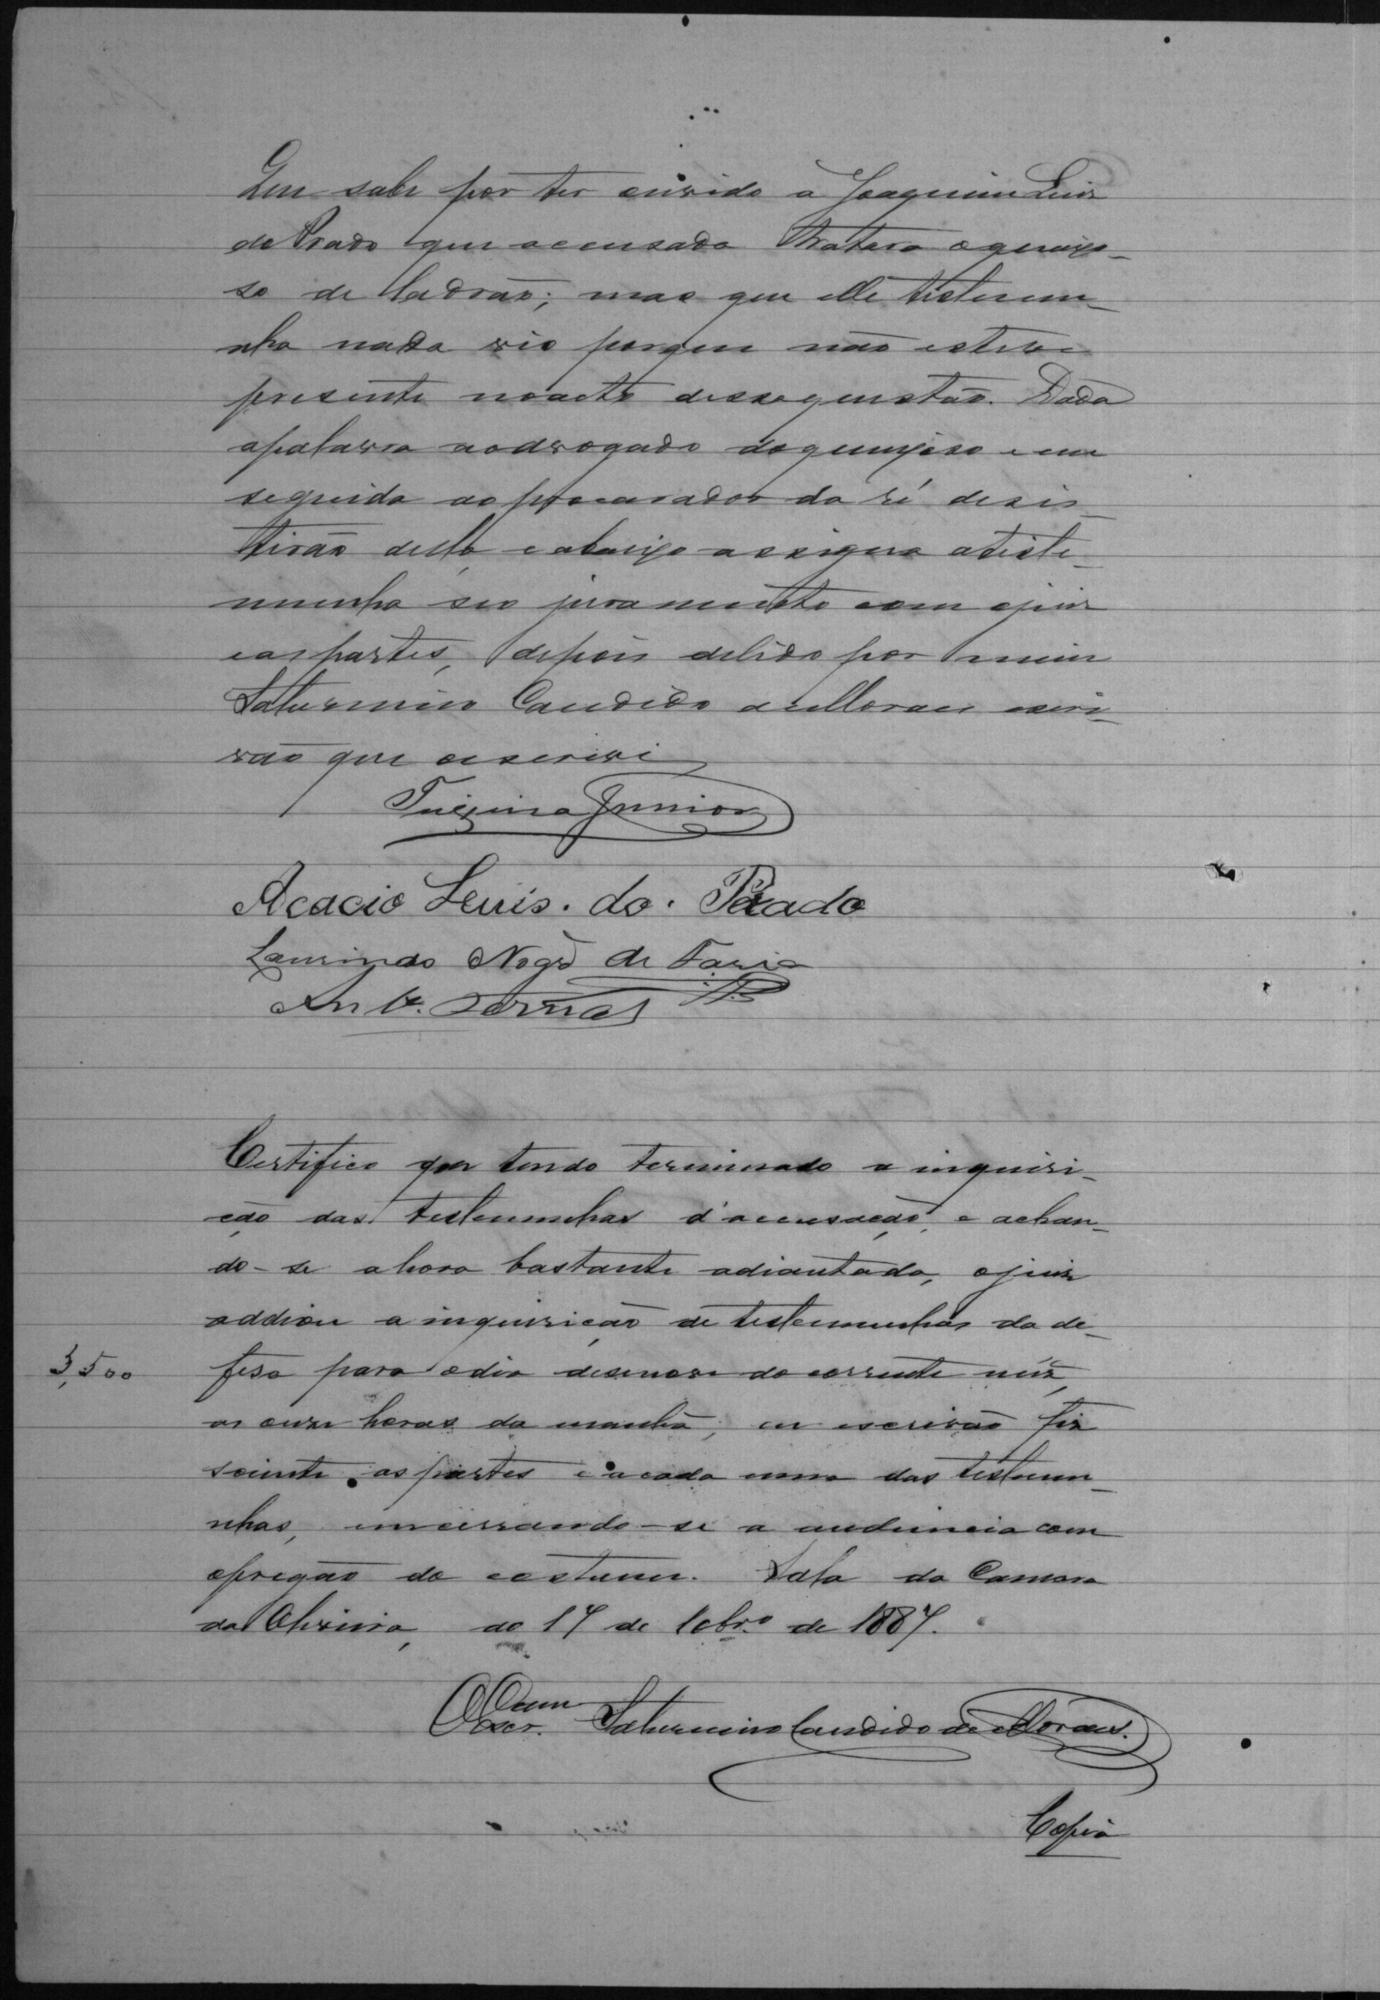 Que sabe por ter ouvido a Joaquim Luis
do Prado que accusada tratara o queixo-
so de ladrão; mas que elle testemu-
nha nada vio porque não esteve
presente no acto dessa questão. Dada
a palavra ao advogado do queixoso e em
seguida ao procurador da ré desis-
tirão della, e abaixo assigna a teste-
munha seo juramento com o juiz
e as partes, depois de lido por mim
Saturnino Candido de Moraes escri-
vão que o escrivi
Junior
Acacio Leuis. do. Prado
Laurindo Nog.ª de Faria
Ant.
Certifico que tendo terminado a inquiri-
ção das testemunhas d'accusação, e achan-
do-se a hora bastante adiantada, o juiz
addiou a inquirição de testemunhas da de-
3,500
fesa para o dia desenove do corrente mêz,
as onze horas da manhã; eu escrivão fiz
sciente as partes e a cada uma das testemu-
nhas, encerrando-se a audiencia com
o pregão do costume. Sala da Camara
da Oliveira, ao 17 de 10br.º de 1887.
O Escr. Saturnino Candido de Moraes.
Copia